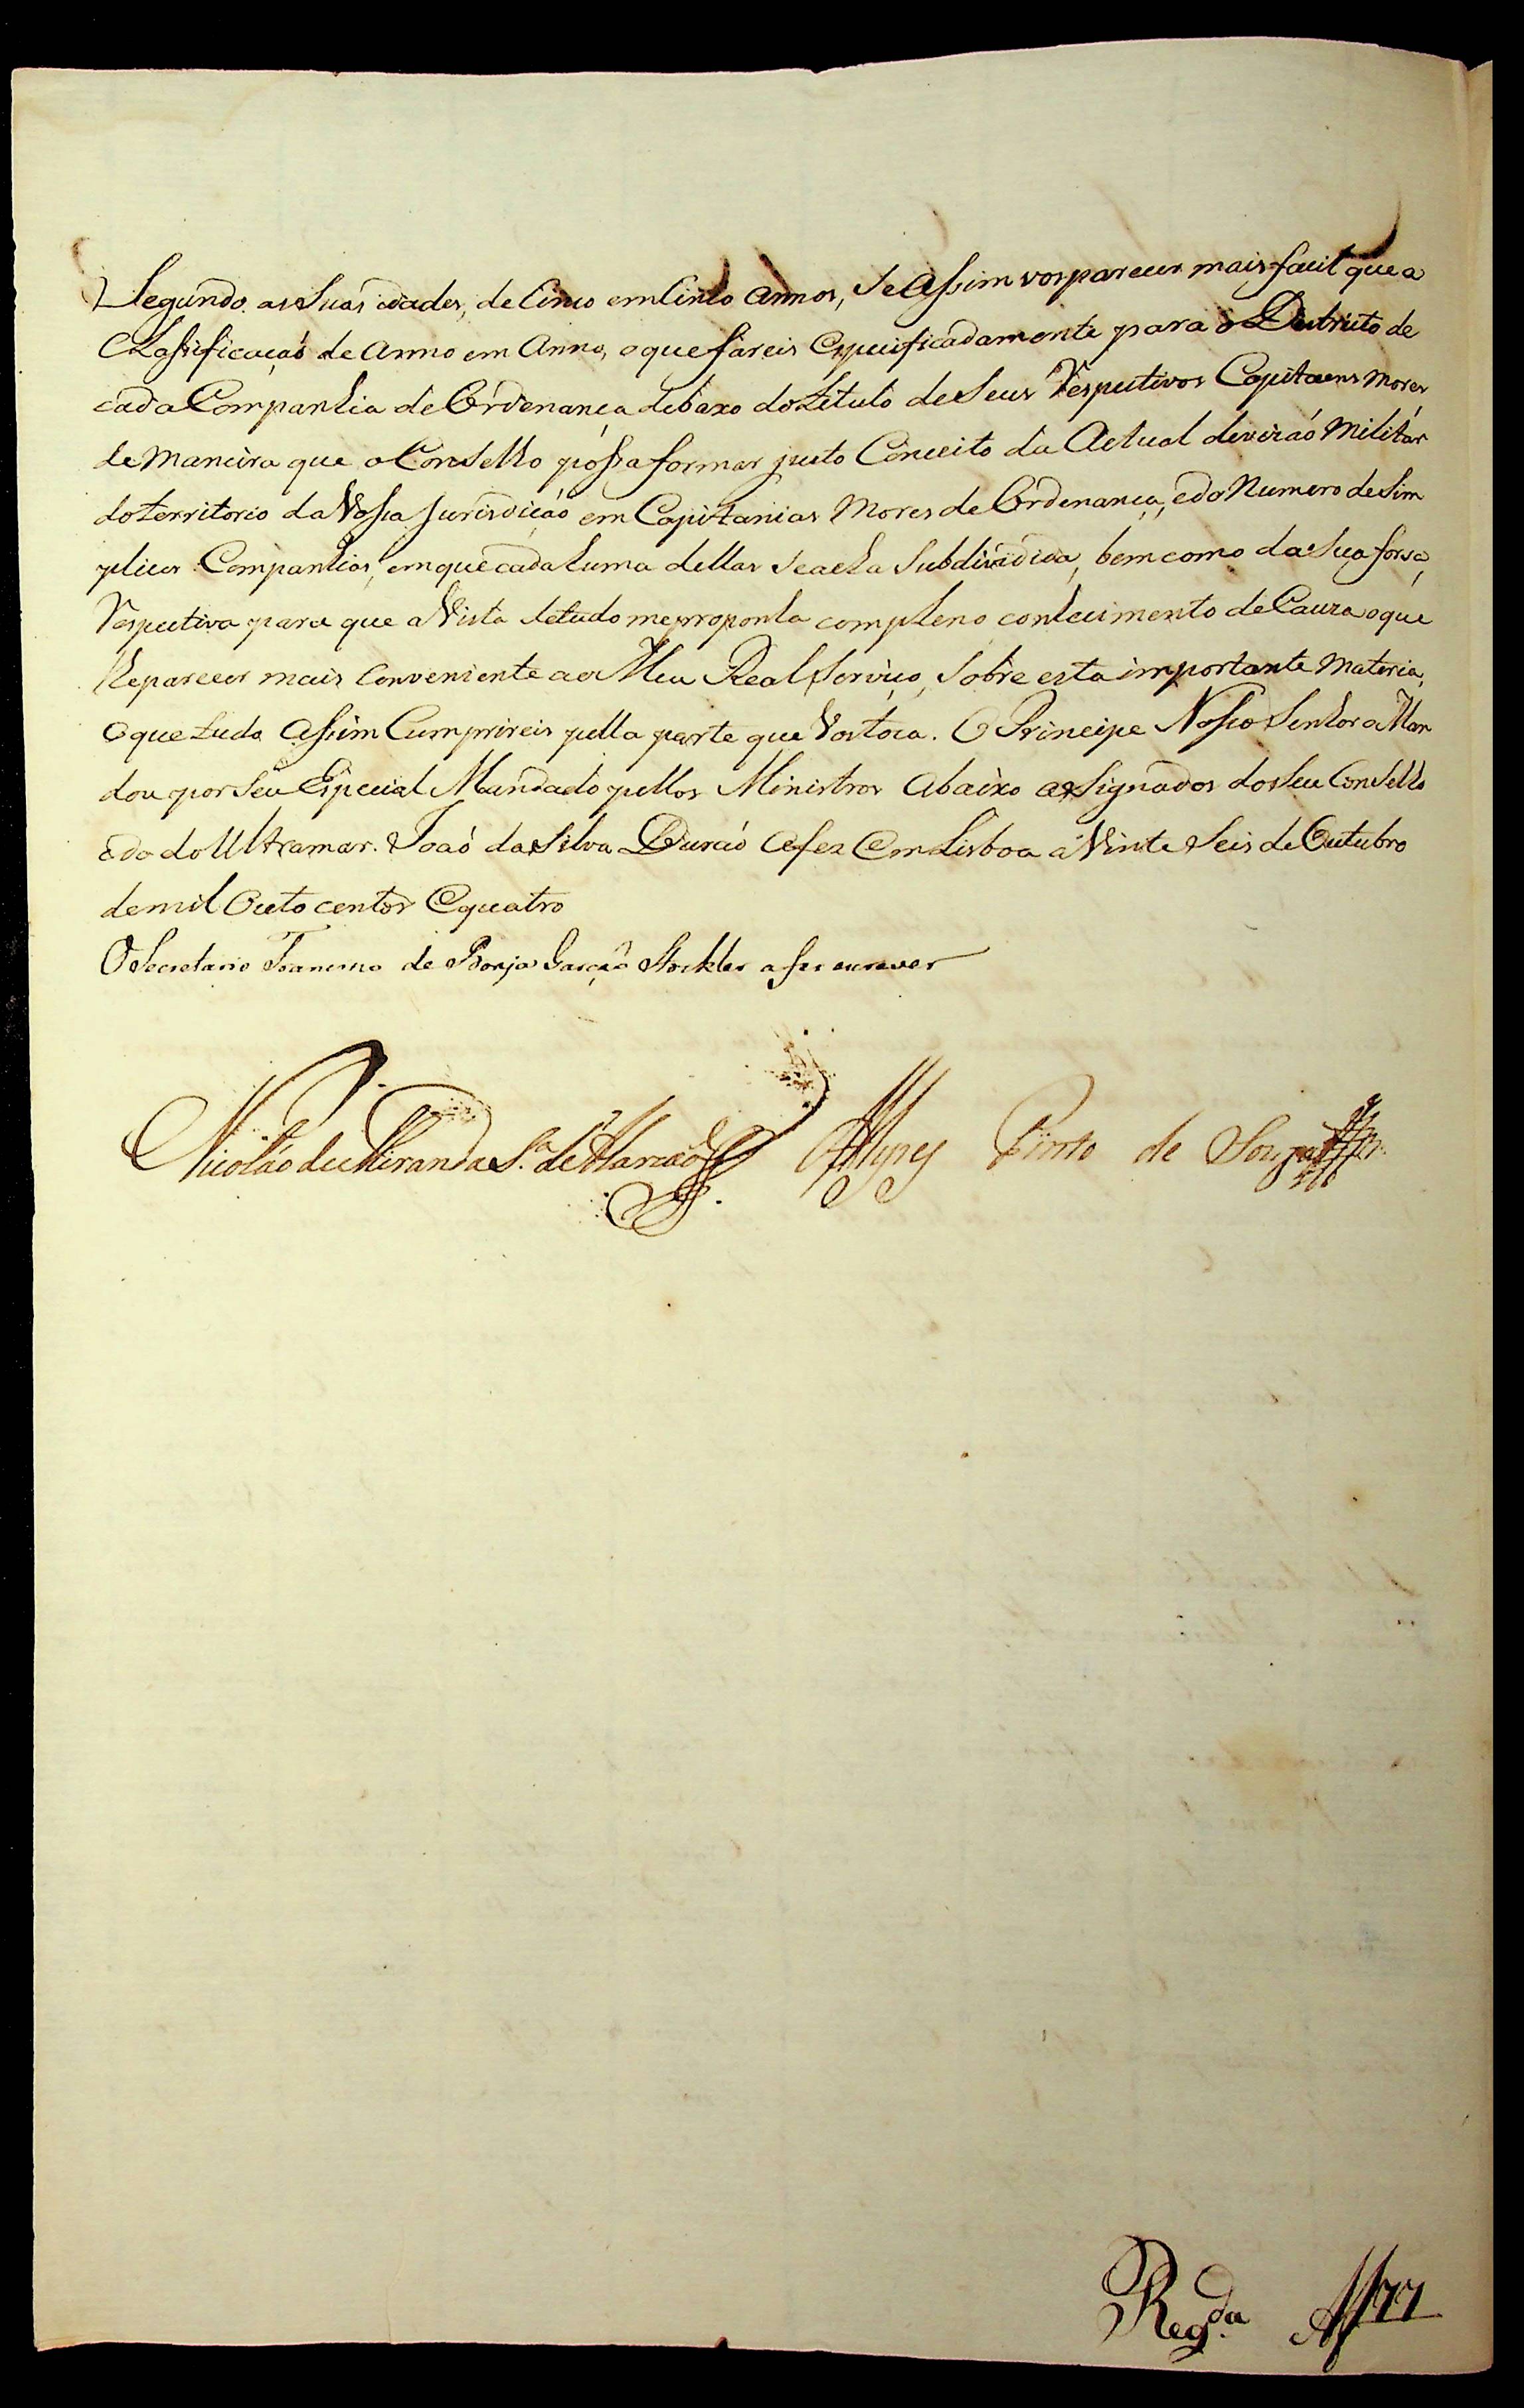 Segundo as Suas idades, de Cinco em Cinco annos, Se assim vos parecer mais facil que a
Classificaçaõ de Anno em Anno, o que fareis Expecificadamente para o Destricto de
cada Companhia de Ordenança debaxo do titulo de Seus Respectivos Capitaens Mores
de Maneira que o Conselho possa formar justo Conceito da Actual devizaõ Militar
do territorio da Vossa Jurisdicaõ em Capitanias Mores de Ordenança, e do Numero de Sim
plices Companhias, em que cada huma dellas Se acha Subdividida, bem como da Sua forsa,
Respectiva para que a Vista de tudo me proponha com pleno conhecimento de Cauza o que
lhe parecer mais Conveniente ao Meu Real Serviço, Sobre esta importante Materia,
o que tudo assim Cumprireis pella parte que Vos toca. O Principe Nosso Senhor o Man
dou por Seu Especial Mandado pellos Ministros abaixo assignados do Seu Conselho
e do do Ultramar. Joaõ da Silva Duraõ a fes em Lisboa a Vinte Seis de Outubro
de mil Outo centos e quatro
O Secretario Francisco de Borja Garçaõ Stockler a fes escrever
Nicoláo de Miranda S.ª de Alarcaõ Ayres Pinto de Souza
Reg.da Af 77